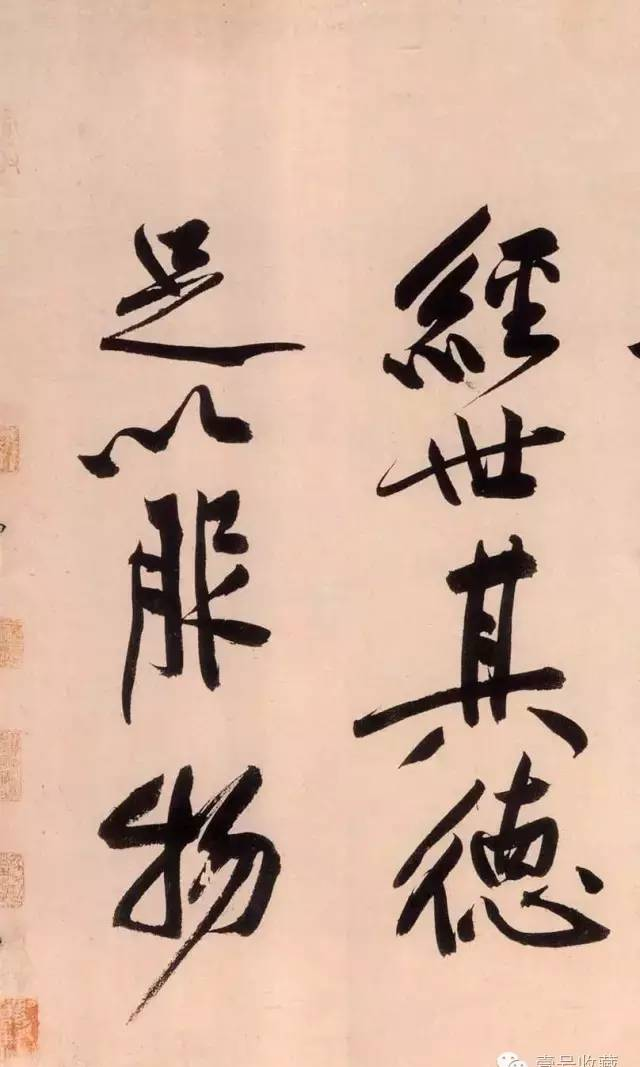 經世其德
足以服物
壹号收藏